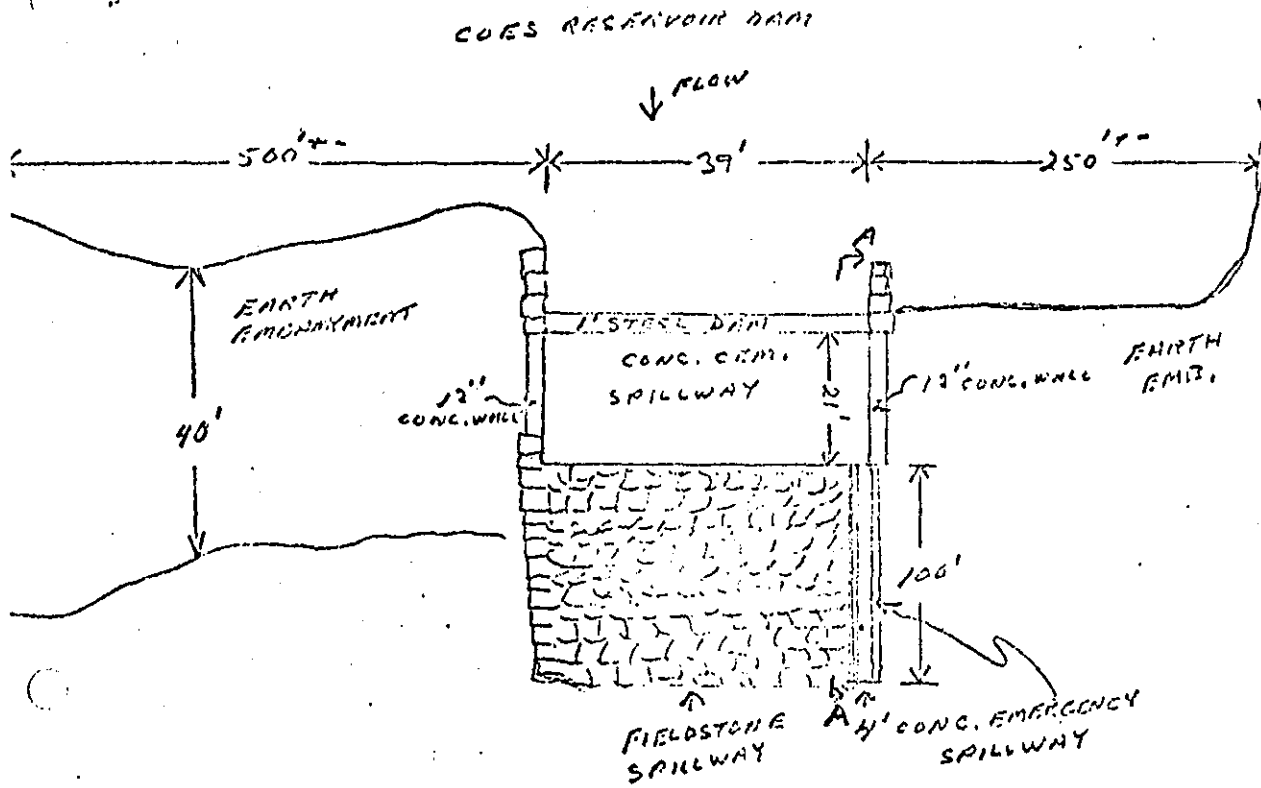 COES RESERVOIR DAM
FLOW
500'+-
39'
250'+-
A
EARTH
EMBANKMENT
1' STEEL DAM
CONC. CEM.
SPILLWAY
21'
EARTH
EMB.
12"
CONC. WALL
12" CONC. WALL
40'
100'
A
FIELDSTONE
SPILLWAY
4' CONC. EMERGENCY
SPILLWAY